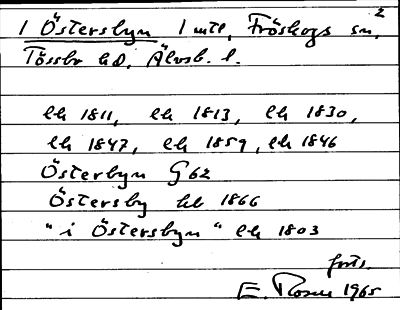 1 Östersbyn 1 mtl, Fröskogs sn. 2
Tössbo hd, Älvsb. l.
lh 1811, lh 1813, lh 1830,
lh 1847, lh 1859, lh 1846
Österbyn G 62
Östersby hl 1866
" i Östersbyn " lh 1803
forts.
E. Rosell 1965